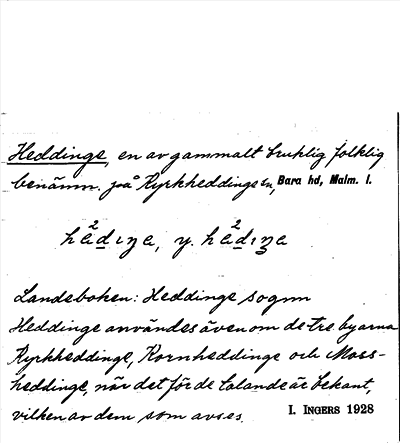 Heddinge, en av gammalt bruklig folklig
benämn. på Kyrkheddinge sn, Bara hd, Malm. l.
Landeboken: Heddinge sognn
Heddinge användes även om de tre byarna
Kyrkheddinge, Kornheddinge och Moss-
heddinge, när det för de talande är bekant,
vilken av dem som avses. I. INGERS 1928